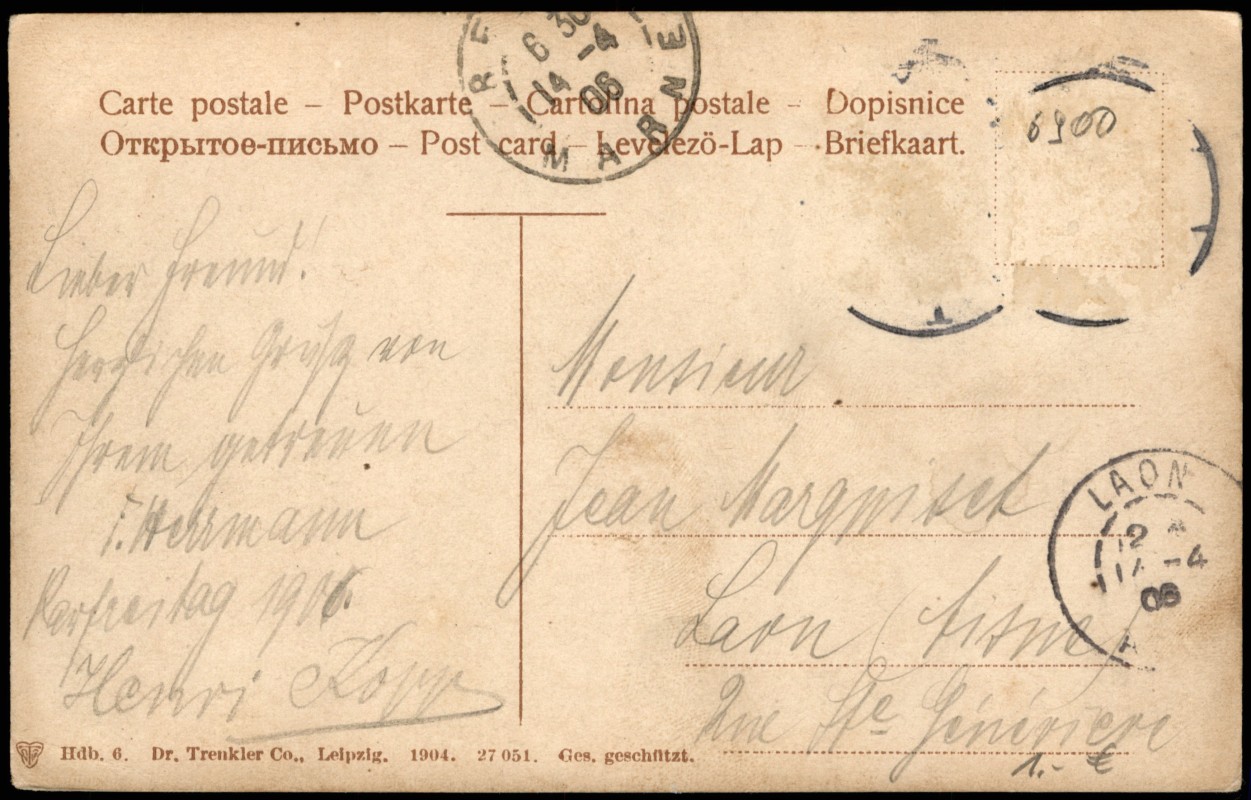 Carte postale – Postkarte – Cartolina postale – Dopisnice
Открытое-письмо – Post card – Levelezö-Lap – Briefkaart.
6 30
14 -4
06
MARNE
6900
Lieber Freund!
Herzlichen Gruß von
Ihrem getreuen
F. Herrmann
Karfreitag 1906.
Henri Kopp
Monsieur
Jean Marquiset
Laon (Aisne)
Rue Ste Géneviève
LAON
12
14 -4
06
A
1.- €
Hdb. 6. Dr. Trenkler Co., Leipzig. 1904. 27 051. Ges. geschützt.